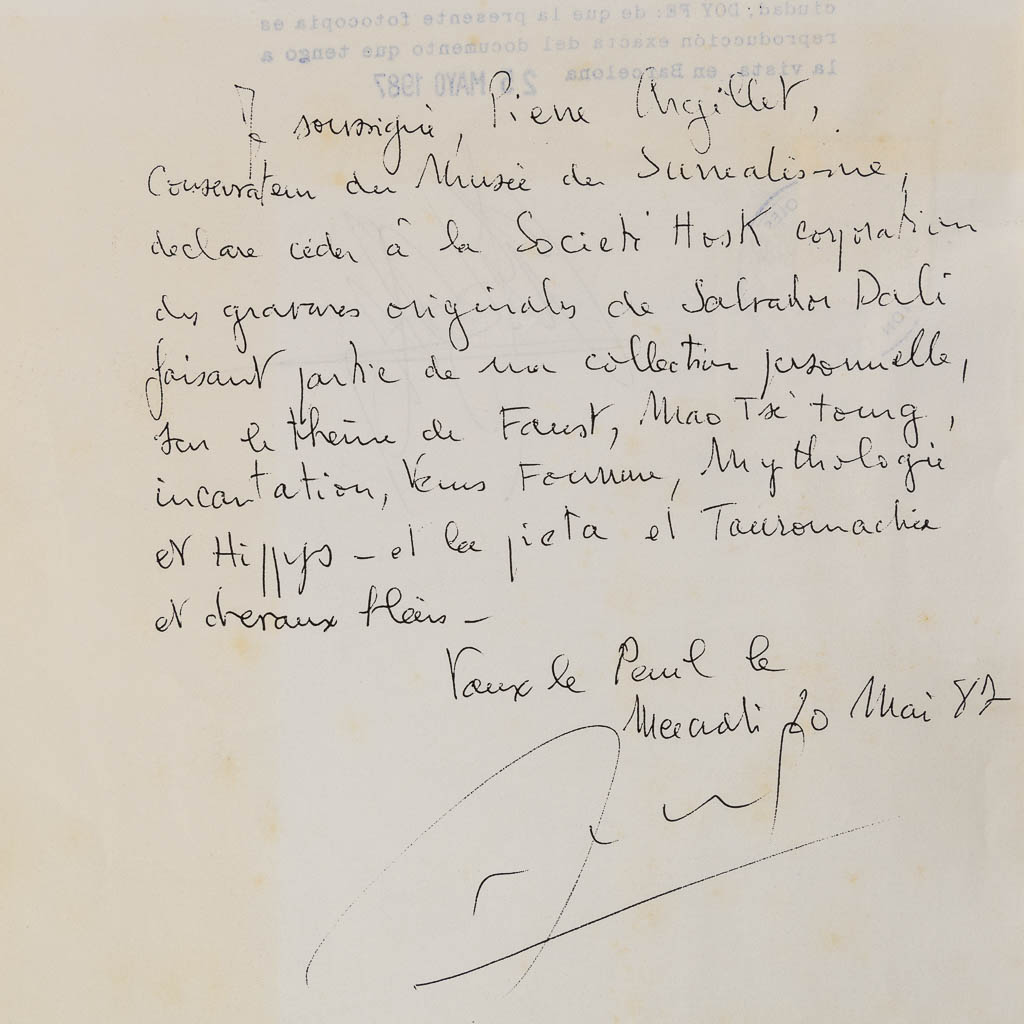 ciudad; DOY FE: de que la presente fotocopia es
reproducción exacta del documento que tengo a
la vista, en Barcelona 2 MAYO 1987
Je soussigné, Pierre Argillet,
Conservateur du Musée du Surréalisme,
déclare céder à la Société Hosk corporation
des gravures originales de Salvador Dali
faisant partie de ma collection personnelle,
sur le thème de Faust, Mao Tsé toung,
incantation, Venus Fourrure, Mythologie
et Hippys - et la pieta et Tauromachie
et chevaux
Vaux le Penil le
Mercredi 20 Mai 87